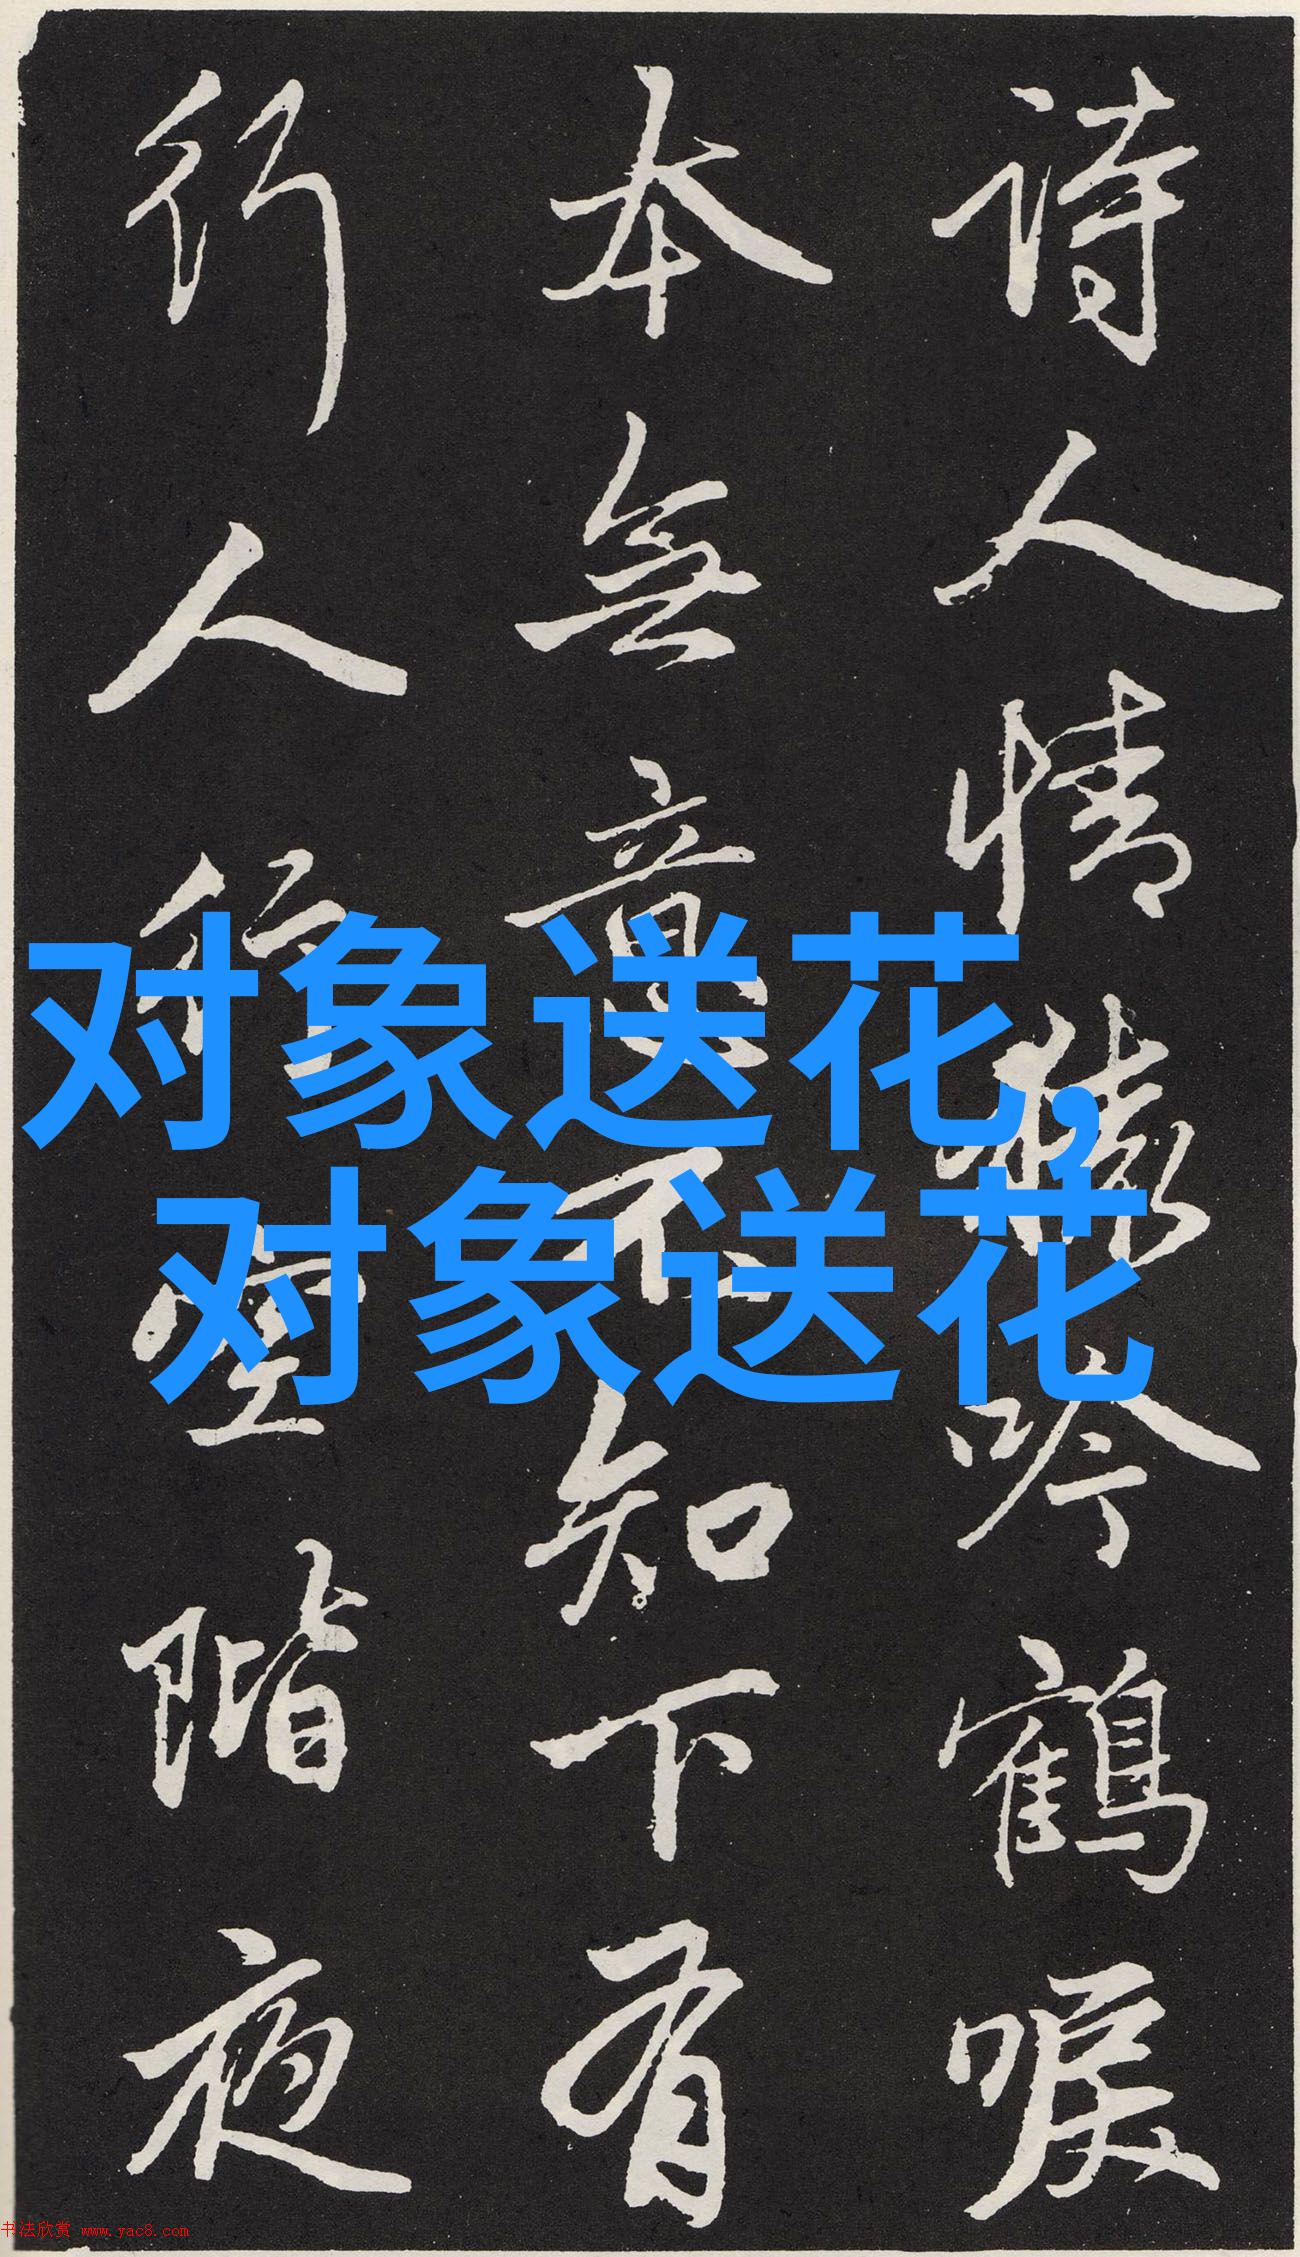 诗人情猿吟鹤唳
本無意不知下有
行人行空階夜
对象送花,
对象送花
书法欣赏 www.yac8.com